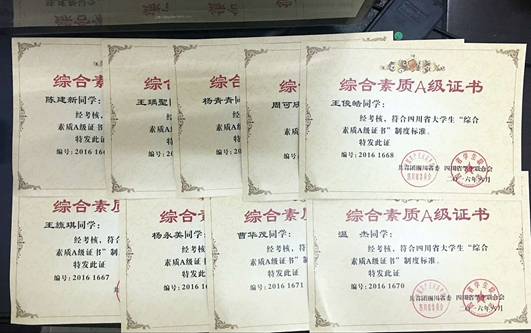 综合素质A级证书
陈建新同学:
经考核,
素质A级证书"
特发此证
编号: 2016 1
综合素
王瑀墅同学
经
素质A
特发
编号: 20
综合素
杨青青同学:
经考
素质A级
特发此
编号: 201
综合素质
周可欣
经
素质A
特发
编号: 2
综合素质A级证书
王俊皓同学:
经考核,符合四川省大学生“综合
素质A级证书”制度标准。
特发此证
编号: 2016 1668
共青团四川省委 四川省学生联合会
二〇一六年六月
综合素质
王旅琪同学:
经考核,
素质A级证书"
特发此证
编号: 2016 1667
综合素质
杨永美同学:
经考核
素质A级证
特发此证
编号: 2016 16
综合素质A
曹华茂同学:
经考核,
素质A级证书
特发此证
编号: 2016 1671
综合素质A级证书
温 杰同学:
经考核,符合四川省大学生“综合
素质A级证书”制度标准。
特发此证
编号: 2016 1670
共青团四川省委 四川省学生联合会
二〇一六年六月